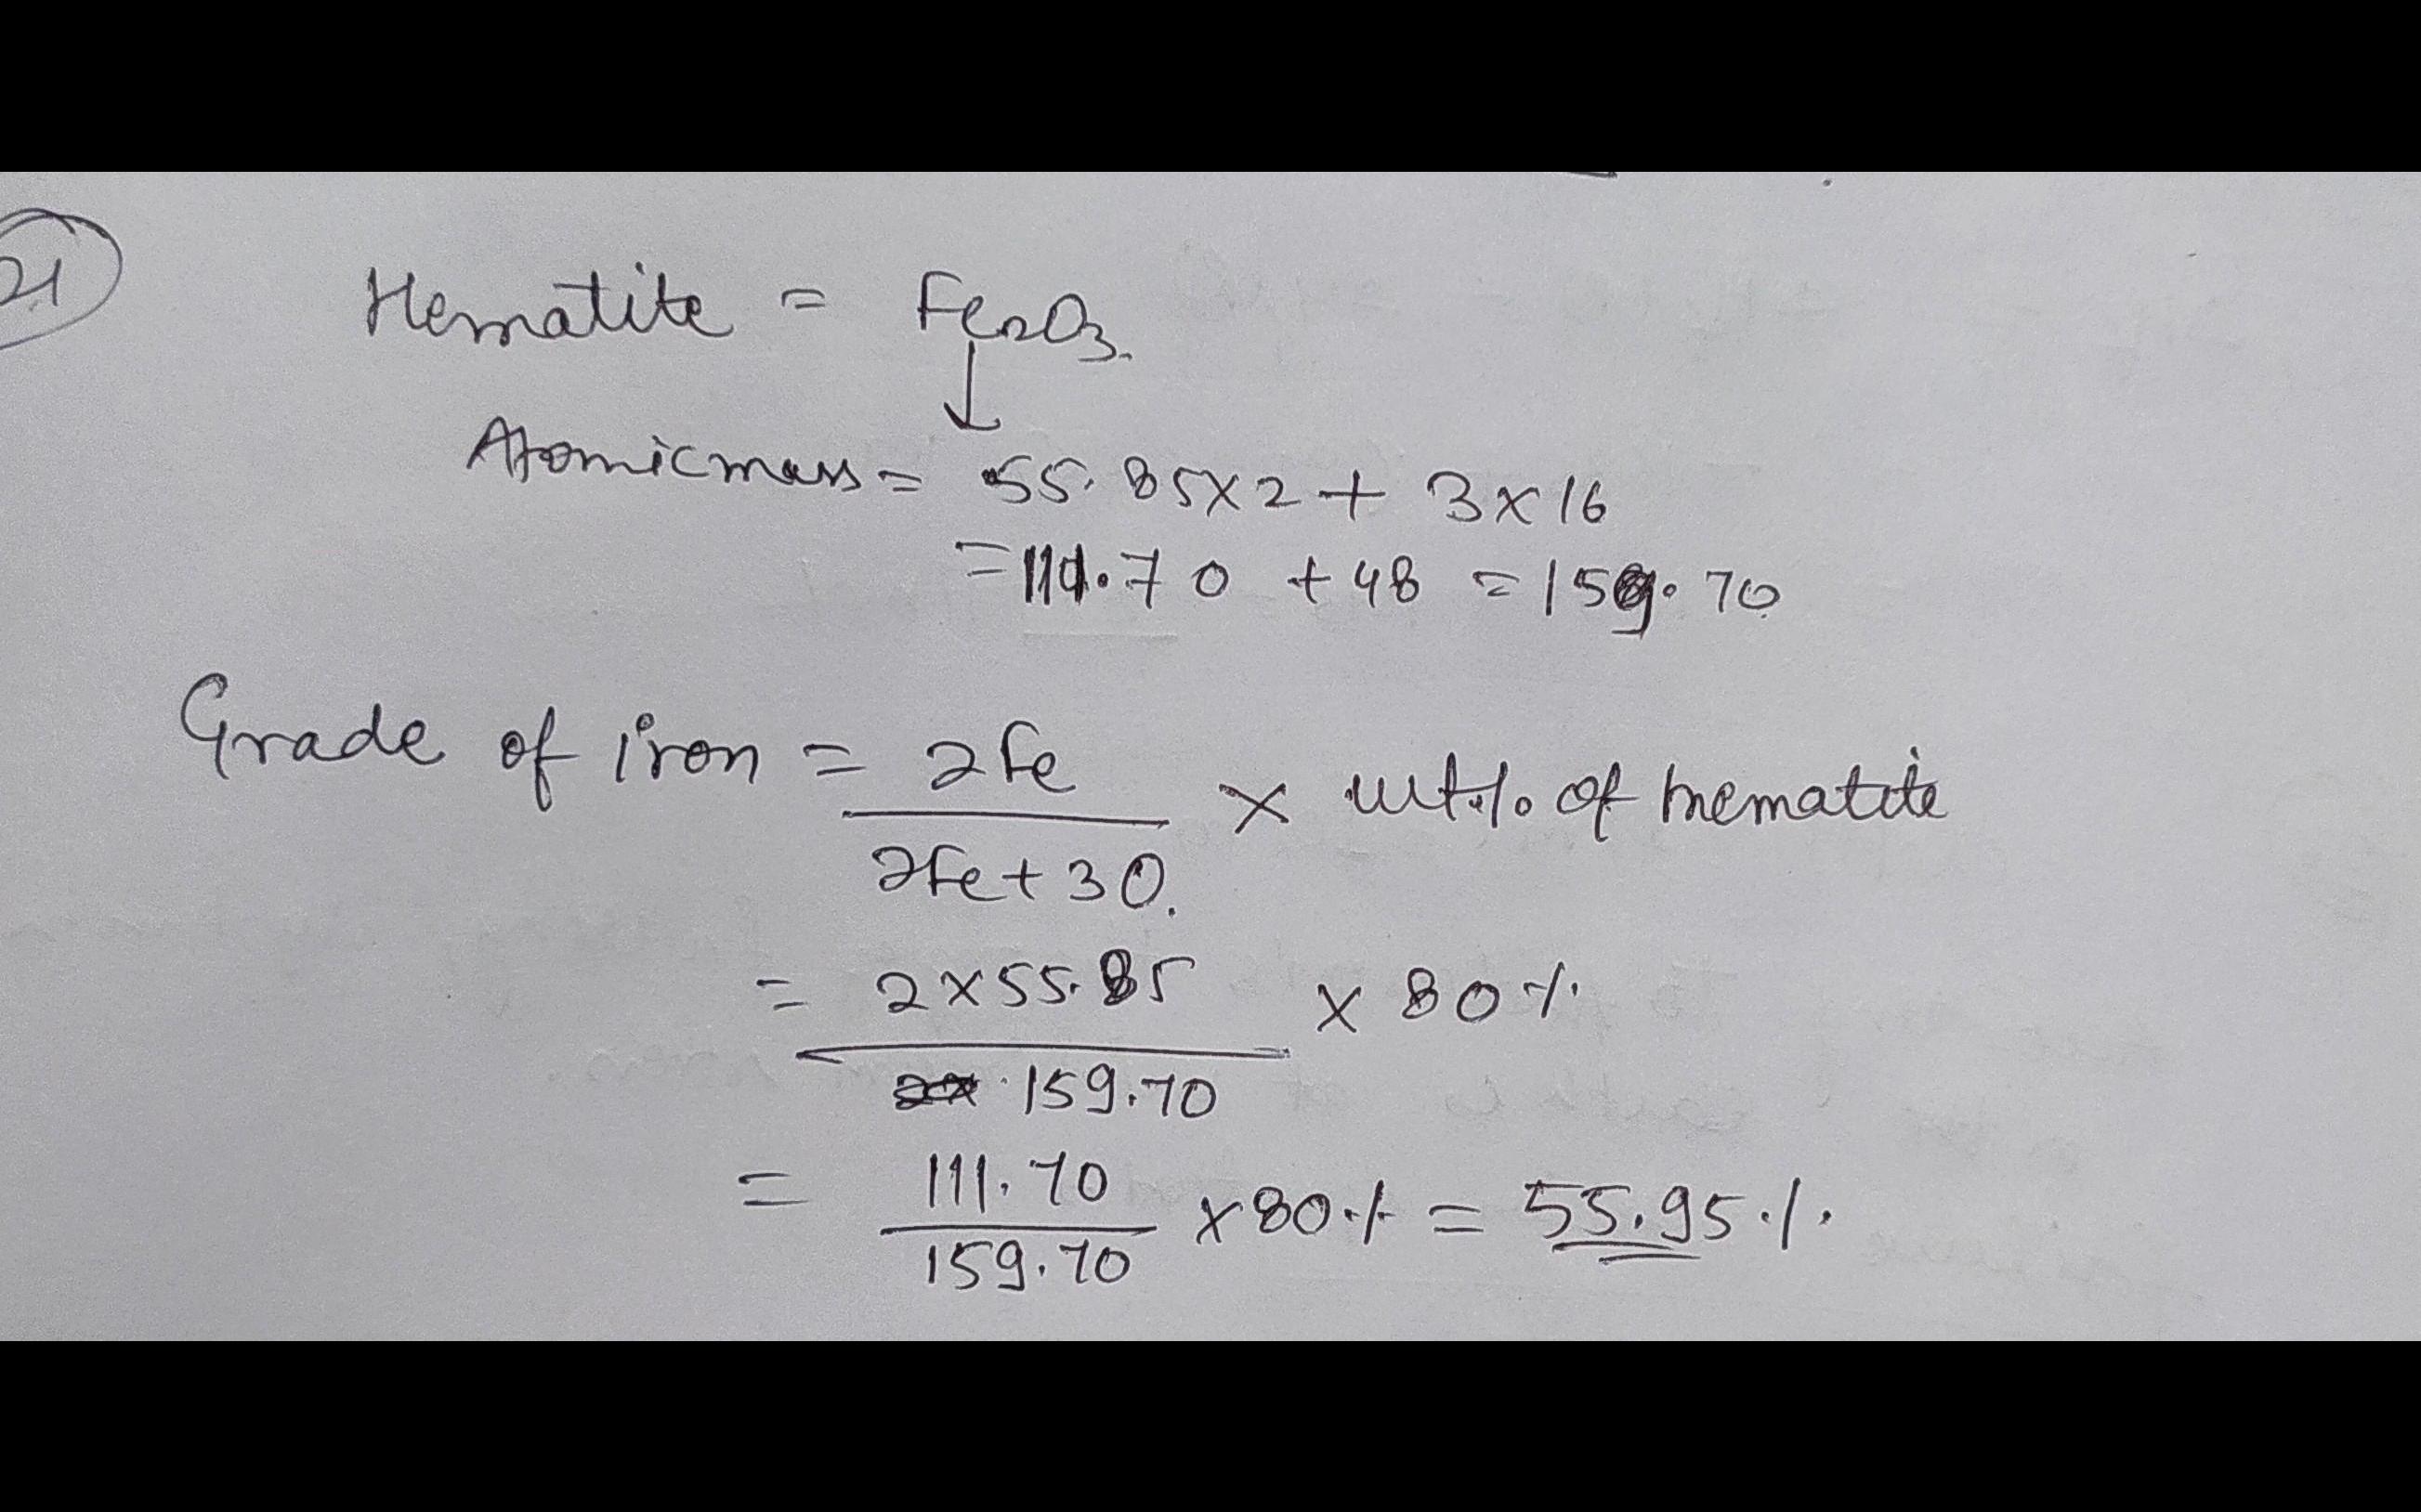 21
Hematite = Fe2O3.
↓
Atomic mass = 55.85x2 + 3x16
= 111.70 + 48 = 159.70
Grade of iron = 2Fe / 2Fe+3O. x wt.% of hematite
= 2x55.85 / 159.70 x 80%
= 111.70 / 159.70 x 80% = 55.95%.